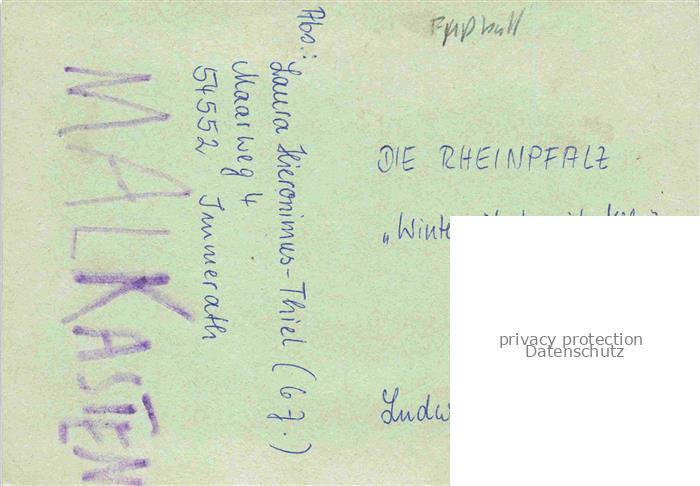 Fußball
Abs.:
Laura Hieronimus-Thiel (6 J.)
Maarweg 4
54552 Immerath
MALKASTEN
DIE RHEINPFALZ
privacy protection
Datenschutz